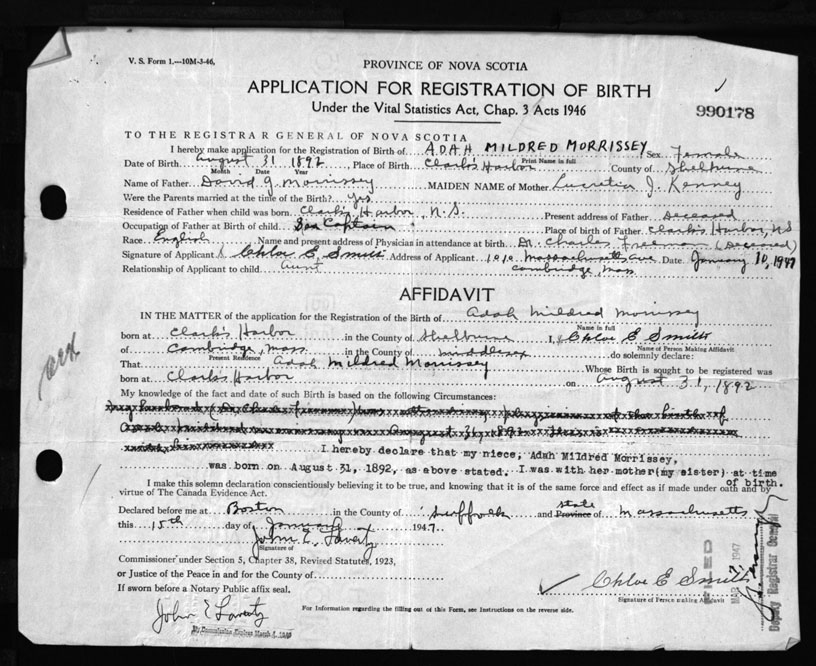 V. S. Form 1.—10M-3-46.
PROVINCE OF NOVA SCOTIA
APPLICATION FOR REGISTRATION OF BIRTH
Under the Vital Statistics Act, Chap. 3 Acts 1946
990178
TO THE REGISTRAR GENERAL OF NOVA SCOTIA
I hereby make application for the Registration of Birth of ADAH MILDRED MORRISSEY Sex Female
Print Name in full
Date of Birth August 31 1892, Place of Birth Clark's Harbor County of Shelburne
Month Date Year
Name of Father David J. Morrissey MAIDEN NAME of Mother Lucretia J. Kenney
Were the Parents married at the time of the Birth? Yes
Residence of Father when child was born Clark's Harbor, N.S. Present address of Father Deceased
Occupation of Father at Birth of child Sea Captain Place of birth of Father Clark's Harbor, N.S
Race English Name and present address of Physician in attendance at birth Dr. Charles Freeman (Deceased)
Signature of Applicant Chloe E Smith Address of Applicant Massachusetts Ave Date January 10, 1947
Relationship of Applicant to child aunt Cambridge, Mass
AFFIDAVIT
IN THE MATTER of the application for the Registration of the Birth of Adah Mildred Morrissey
Name in full
born at Clark's Harbor in the County of Shelburne I, Chloe E Smith
Name of Person Making Affidavit
of Cambridge, Mass in the County of Middlesex do solemnly declare:
Present Residence
That Adah Mildred Morrissey Whose Birth is sought to be registered was
born at Clark's Harbor on August 31, 1892
My knowledge of the fact and date of such Birth is based on the following Circumstances:
I hereby declare that my niece, Adah Mildred Morrissey,
was born on August 31, 1892, as above stated. I was with her mother(my sister) at time
of birth.
I make this solemn declaration conscientiously believing it to be true, and knowing that it is of the same force and effect as if made under oath and by
virtue of The Canada Evidence Act.
Declared before me at Boston in the County of Suffolk and Province of state Massachusetts
this 15th day of January 1947.
John E. Laverty
Signature of
Commissioner under Section 5, Chapter 38, Revised Statutes, 1923,
or Justice of the Peace in and for the County of
If sworn before a Notary Public affix seal.
Chloe E Smith
Signature of Person making Affidavit
For Information regarding the filling out of this Form, see Instructions on the reverse side.
John E Laverty
My Commission Expires March
FILED
MAR 1947
Deputy Registrar General